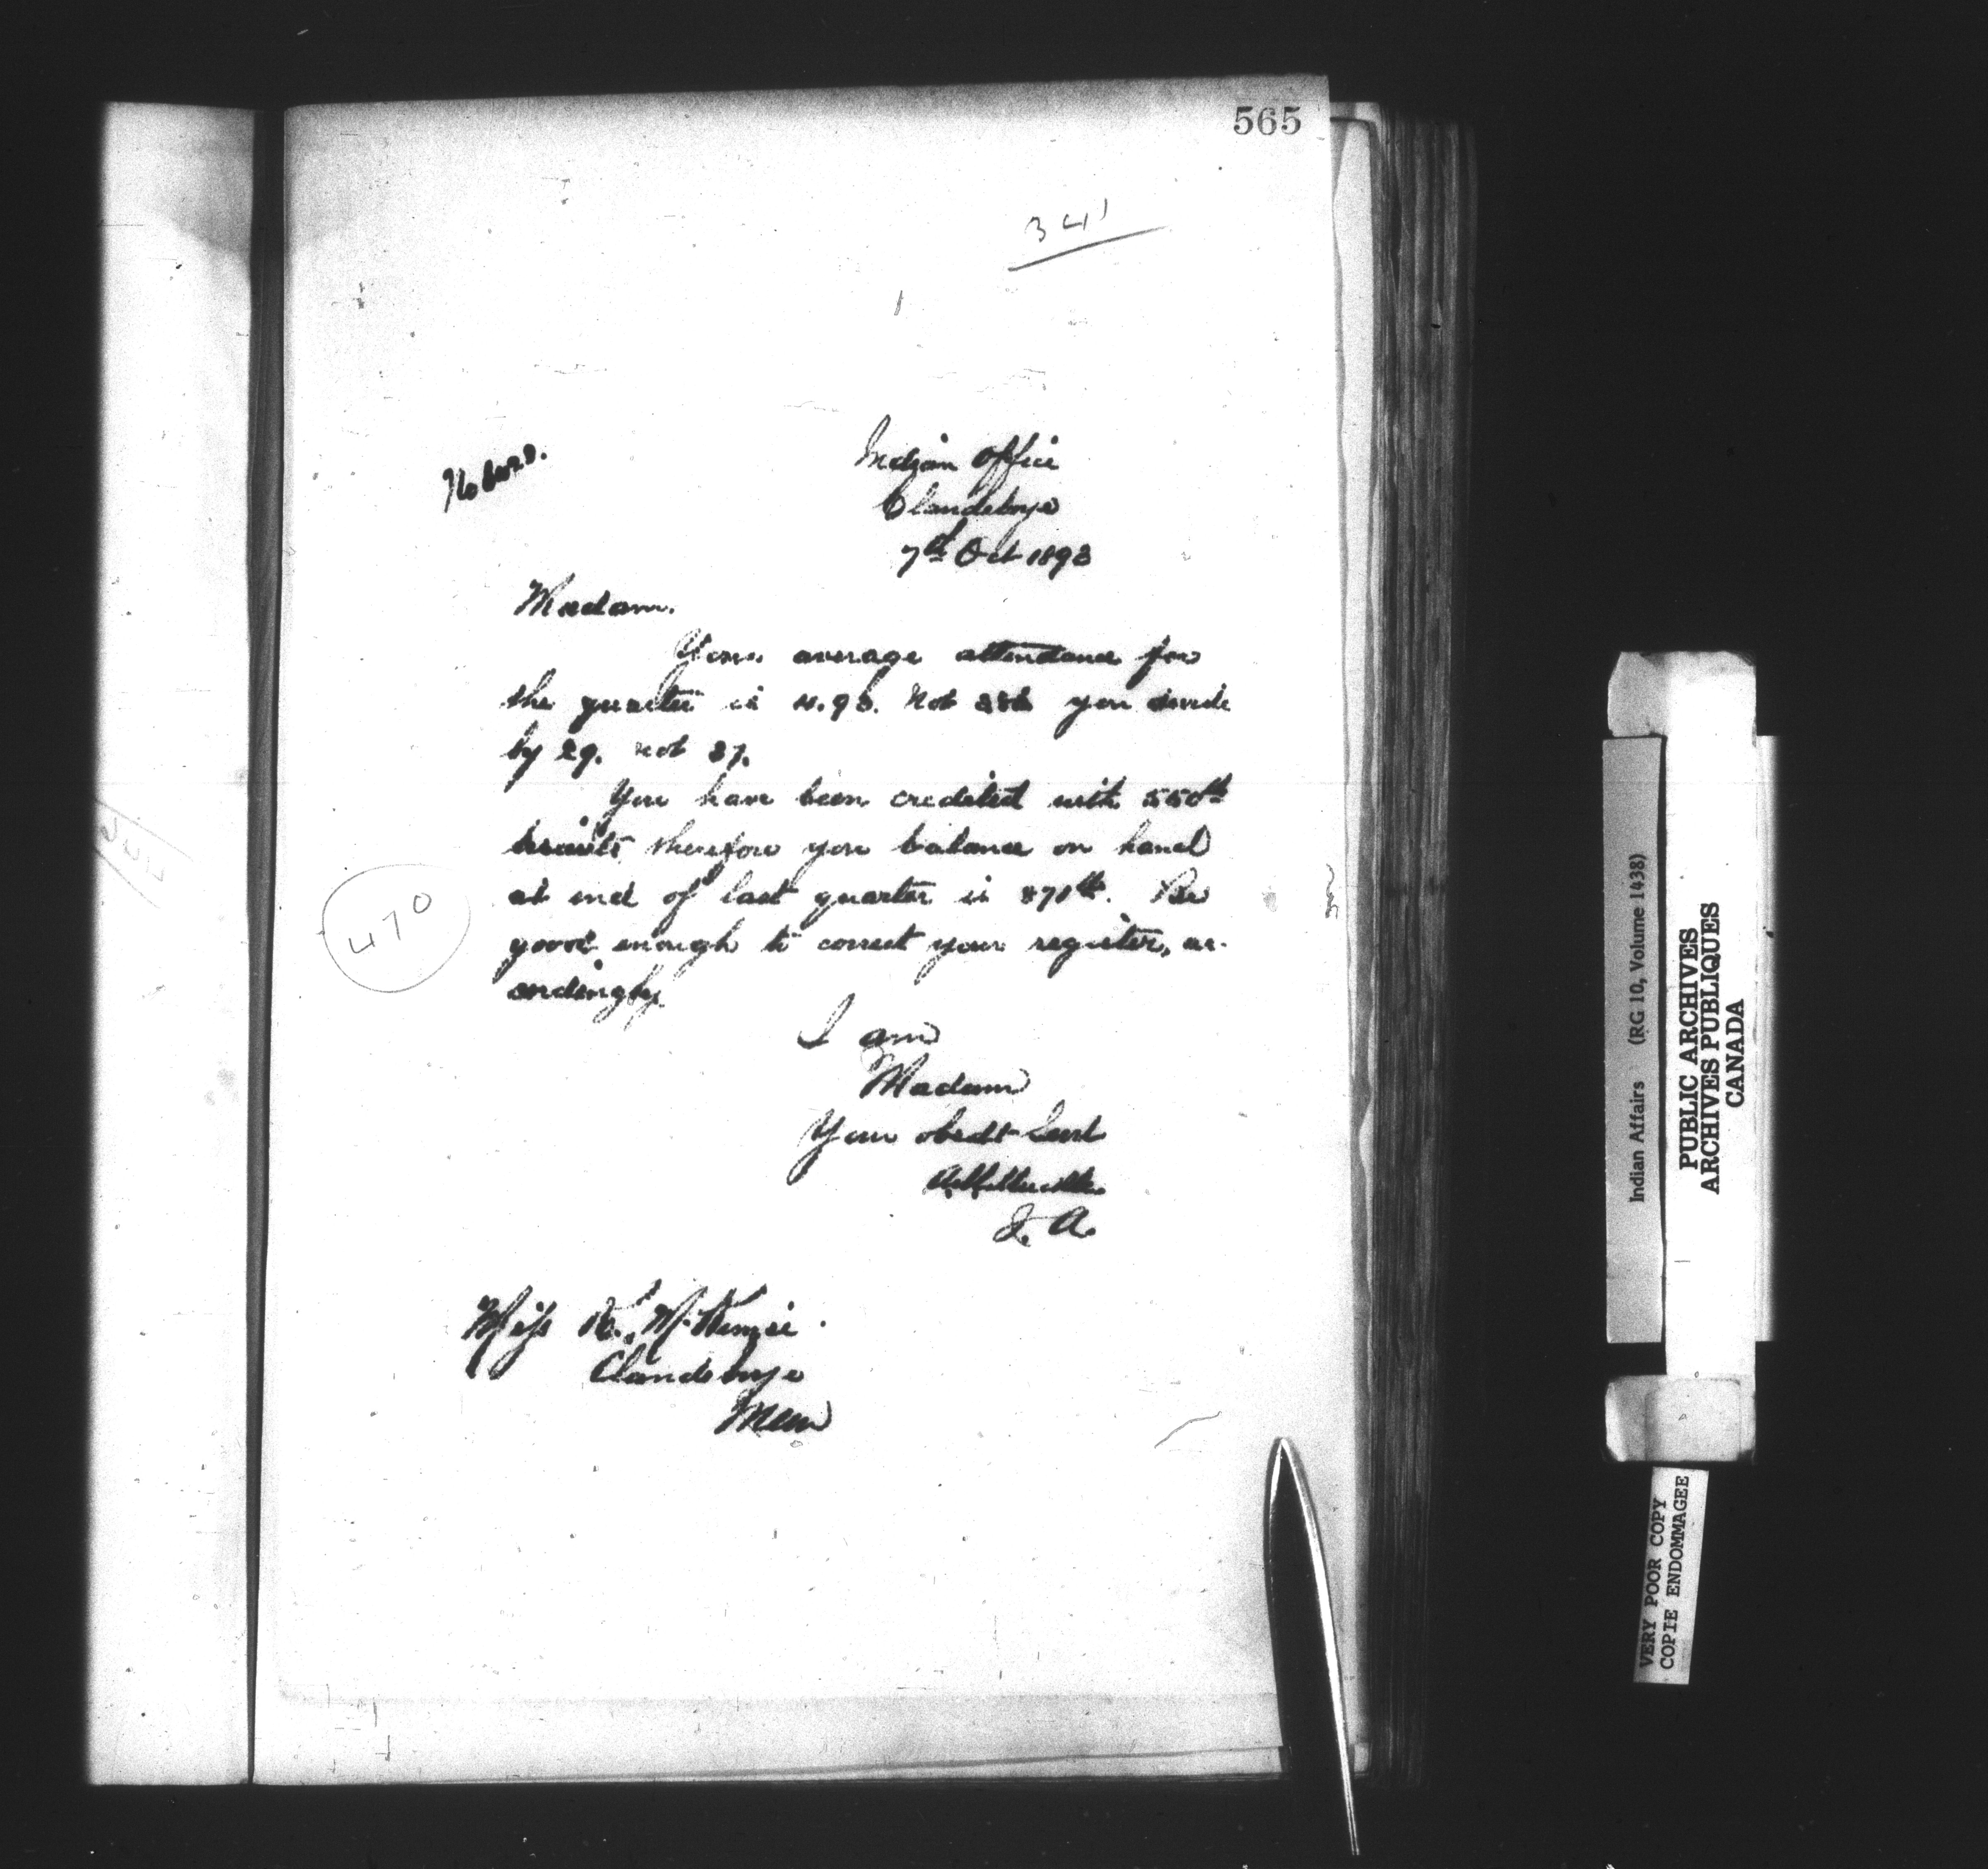 565
341
Indian Office
Clandeboye
7th Oct 1893
Madam.
Your average attendance for
the quarter is 11.93. Not you divide
by 29. not 37.
You have been credited with 550 lbs
biscuits, therefore you balance on hand
at end of last quarter is lbs. Be
good enough to correct your register, ac-
cordingly.
470
I am
Madam
Your obedt Servt
I. A.
Miss K. McKenzie.
Clandeboye
Man
Indian Affairs (RG 10, Volume 1438)
PUBLIC ARCHIVES
ARCHIVES PUBLIQUES
CANADA
VERY POOR COPY
COPIE ENDOMMAGEE